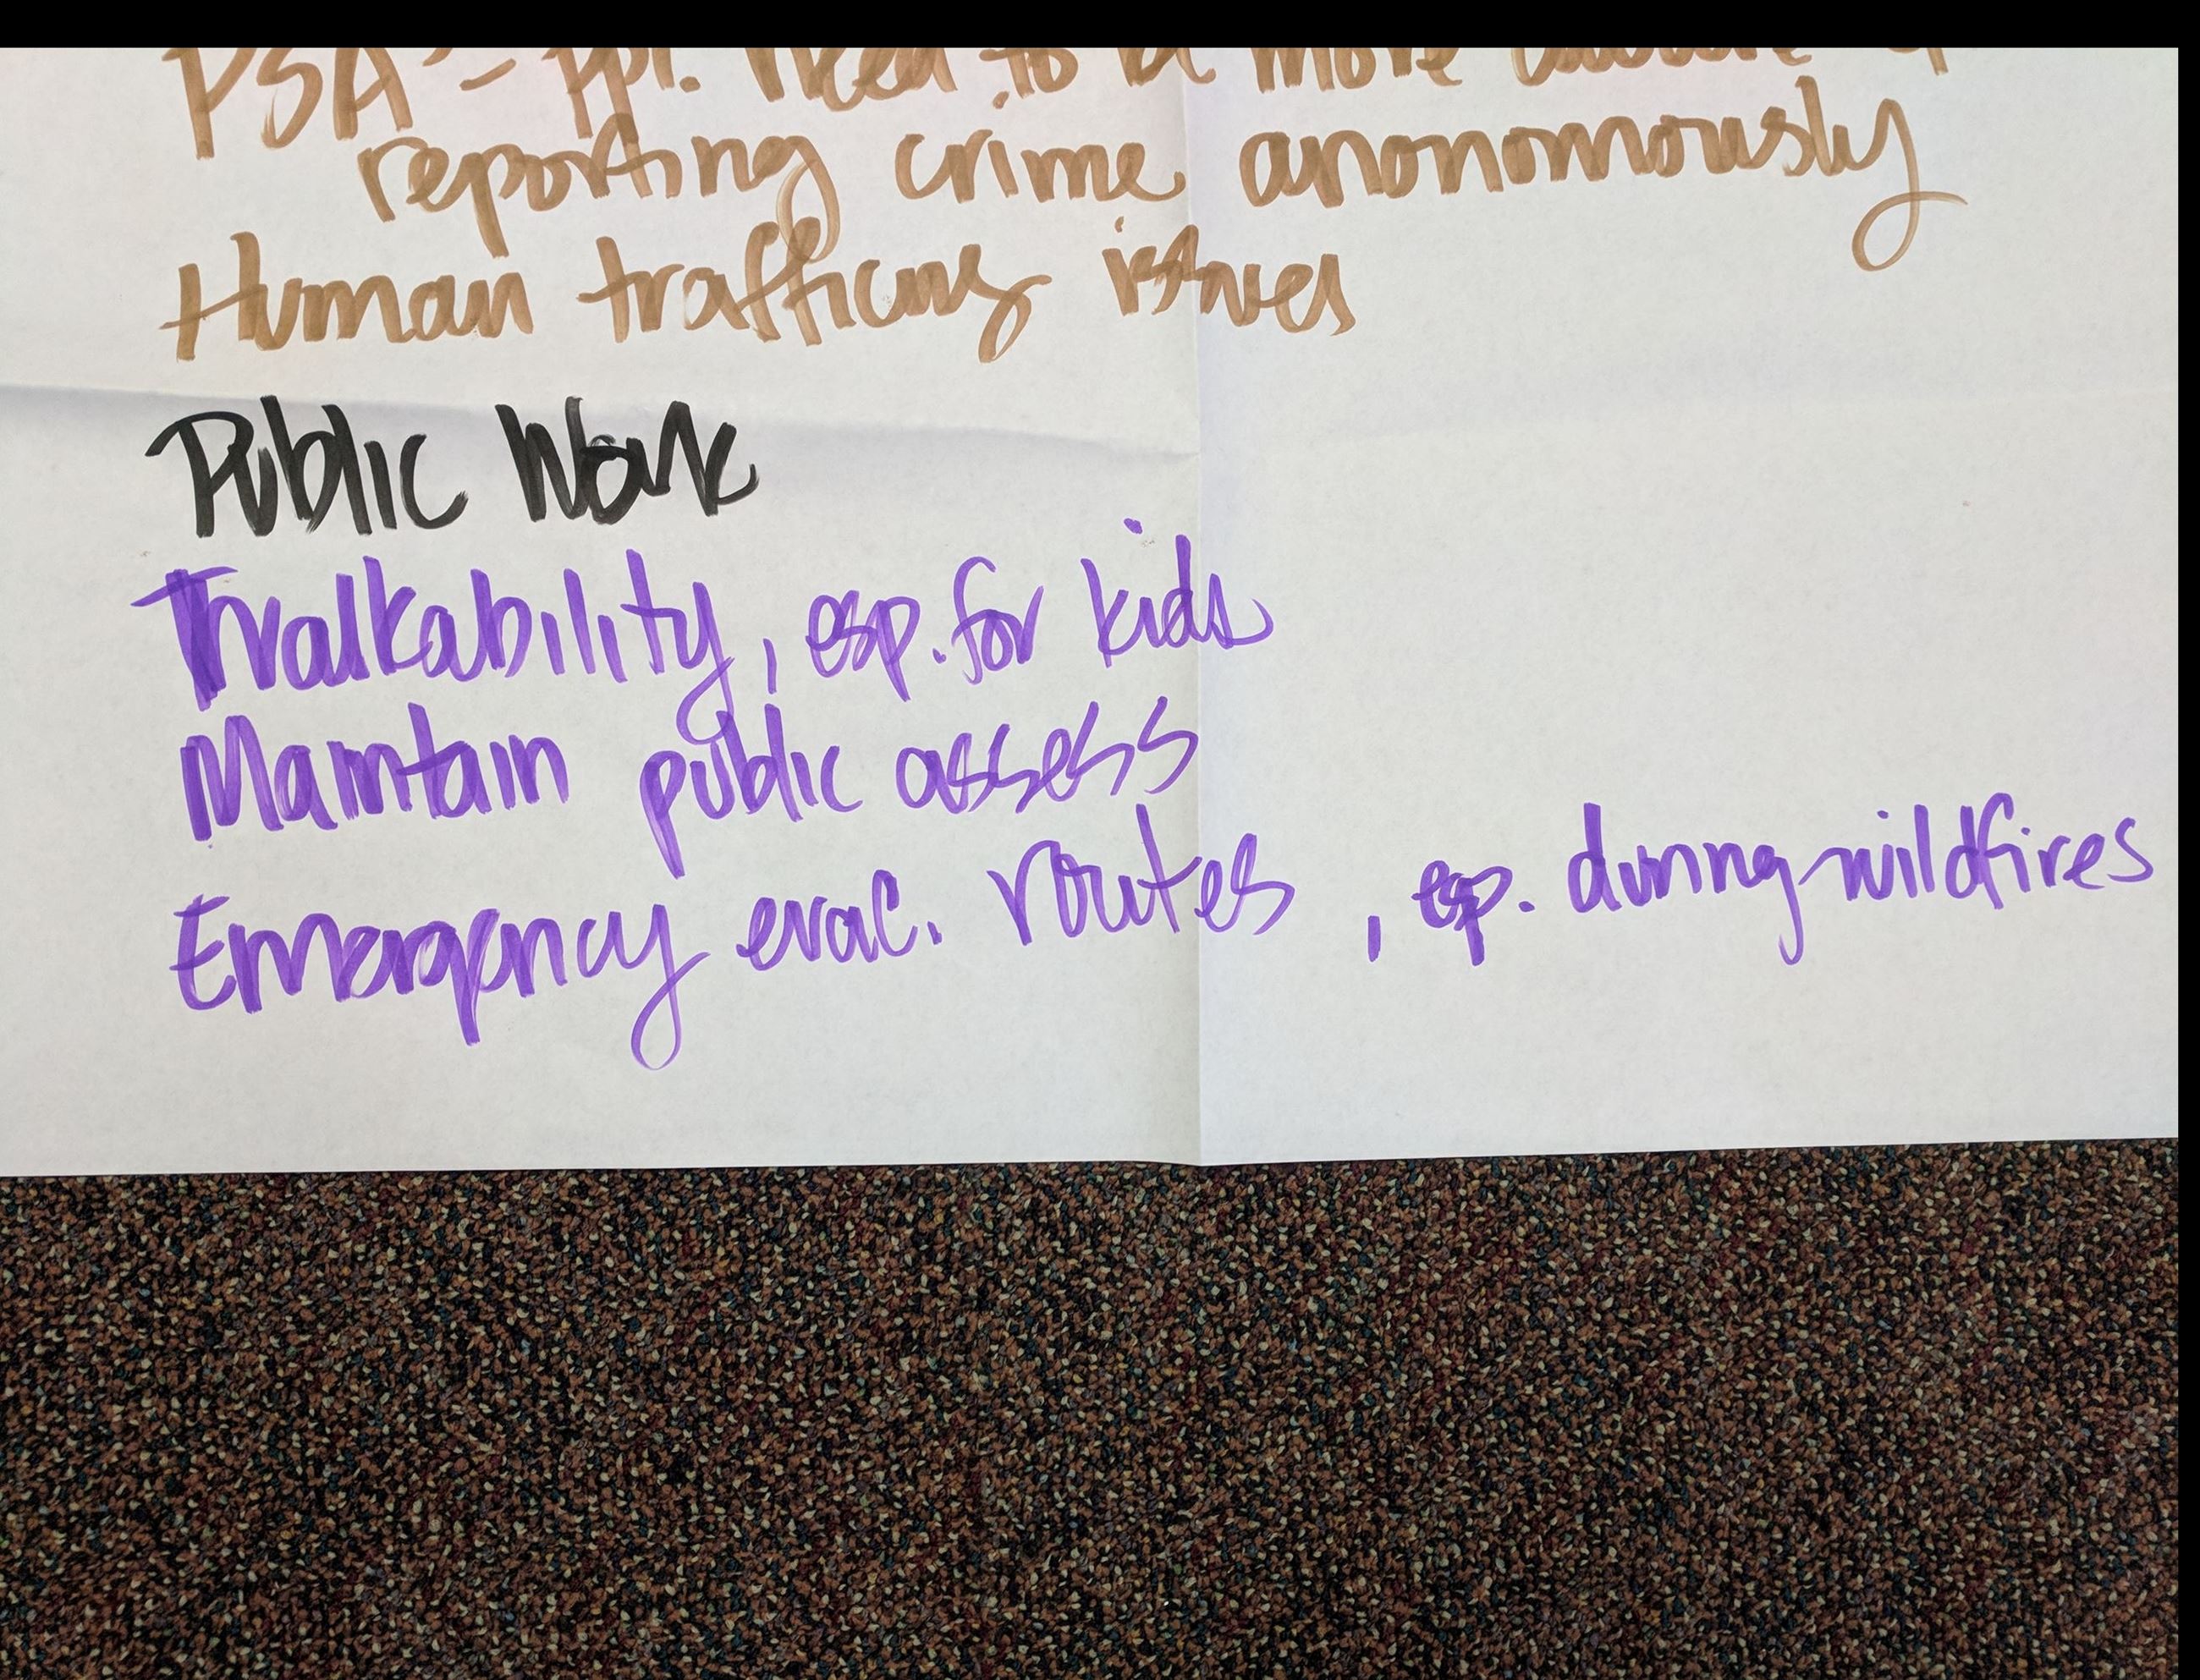 PSA's - ppl. need to be more aware of
reporting crime anonomously
Human trafficing issues
Public Work
Walkability, esp. for kids
Maintain public assess
Emergency evac. routes, esp. during wildfires